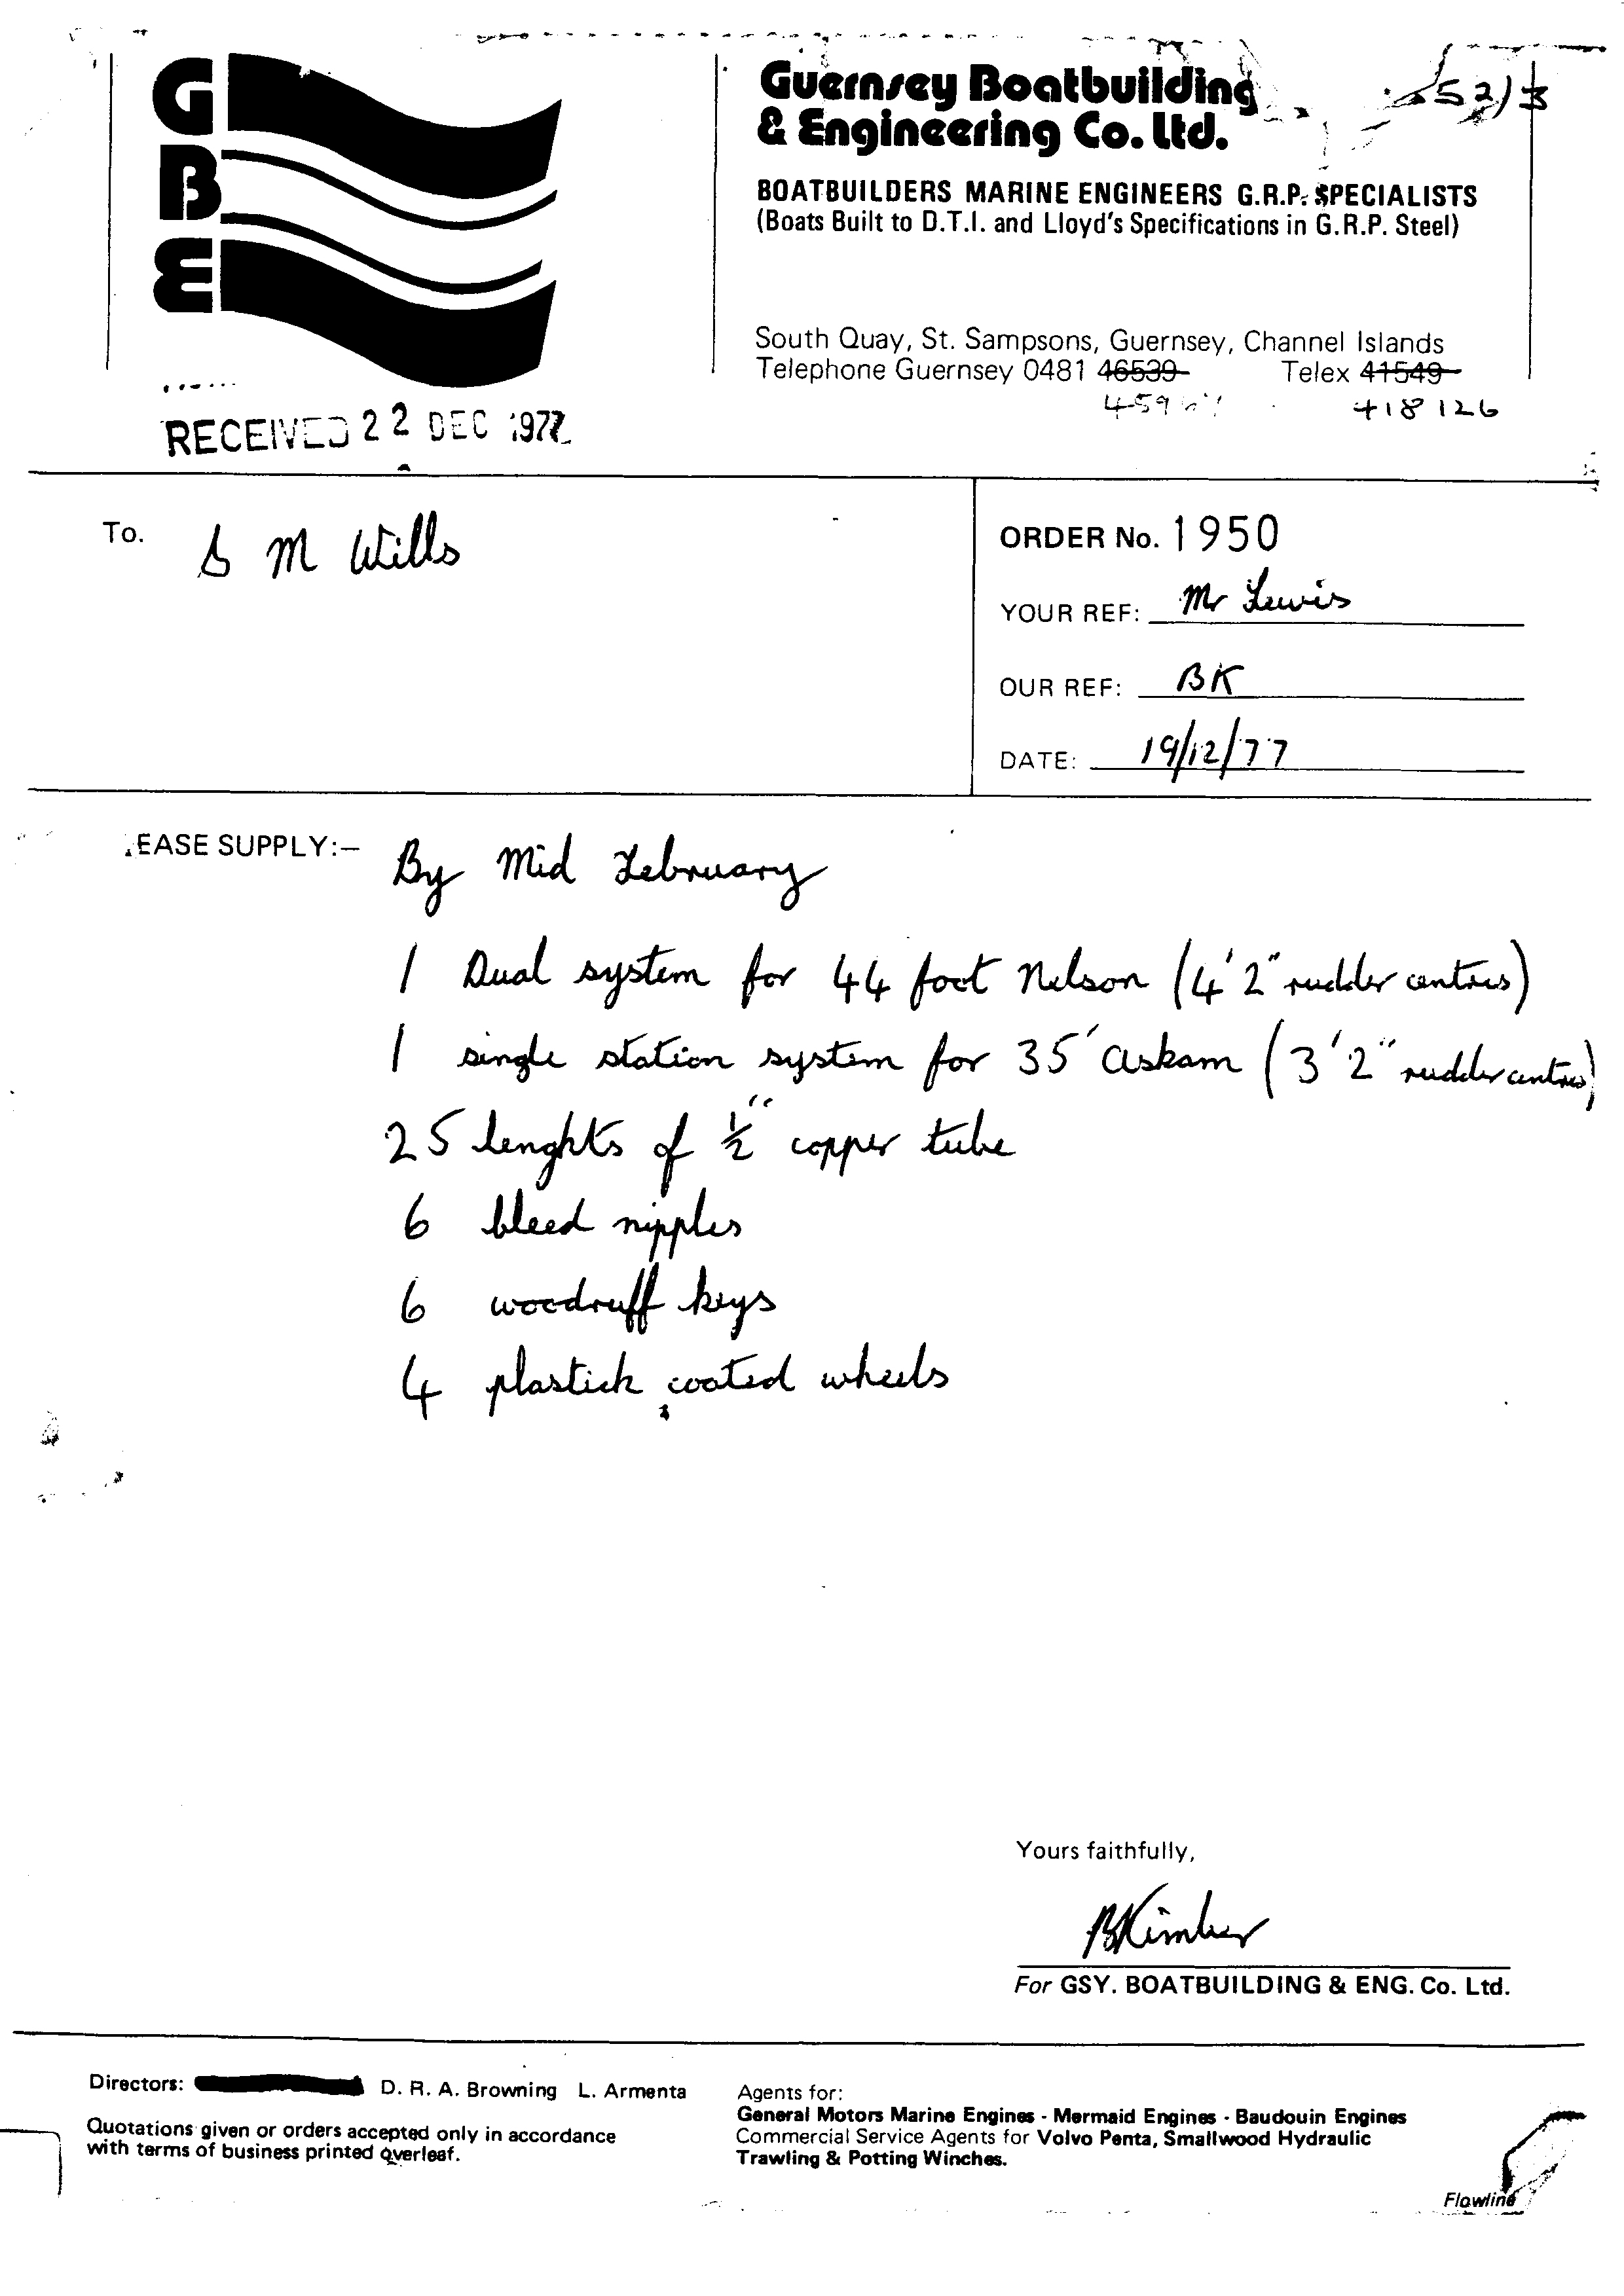 G
B
E
Guernsey Boatbuilding
& Engineering Co. Ltd.
BOATBUILDERS MARINE ENGINEERS G.R.P. SPECIALISTS
(Boats Built to D.T.I. and Lloyd's Specifications in G.R.P. Steel)
South Quay, St. Sampsons, Guernsey, Channel Islands
Telephone Guernsey 0481 46539 Telex 41549
418126
RECEIVED 22 DEC 1977
To. S M Wills
ORDER No. 1950
YOUR REF: Mr Lewis
OUR REF: BK
DATE: 19/12/77
EASE SUPPLY:— By Mid February
1 Dual system for 44 foot Nelson (4'2" rudder centres)
1 single station system for 35' Askam (3'2" rudder centres)
25 lenghts of ½" copper tube
6 bleed nipples
6 woodruff keys
4 plastick coated wheels
Yours faithfully,
BKimber
For GSY. BOATBUILDING & ENG. Co. Ltd.
Directors: D. R. A. Browning L. Armenta
Quotations given or orders accepted only in accordance
with terms of business printed overleaf.
Agents for:
General Motors Marine Engines - Mermaid Engines - Baudouin Engines
Commercial Service Agents for Volvo Penta, Smallwood Hydraulic
Trawling & Potting Winches.
Flowline